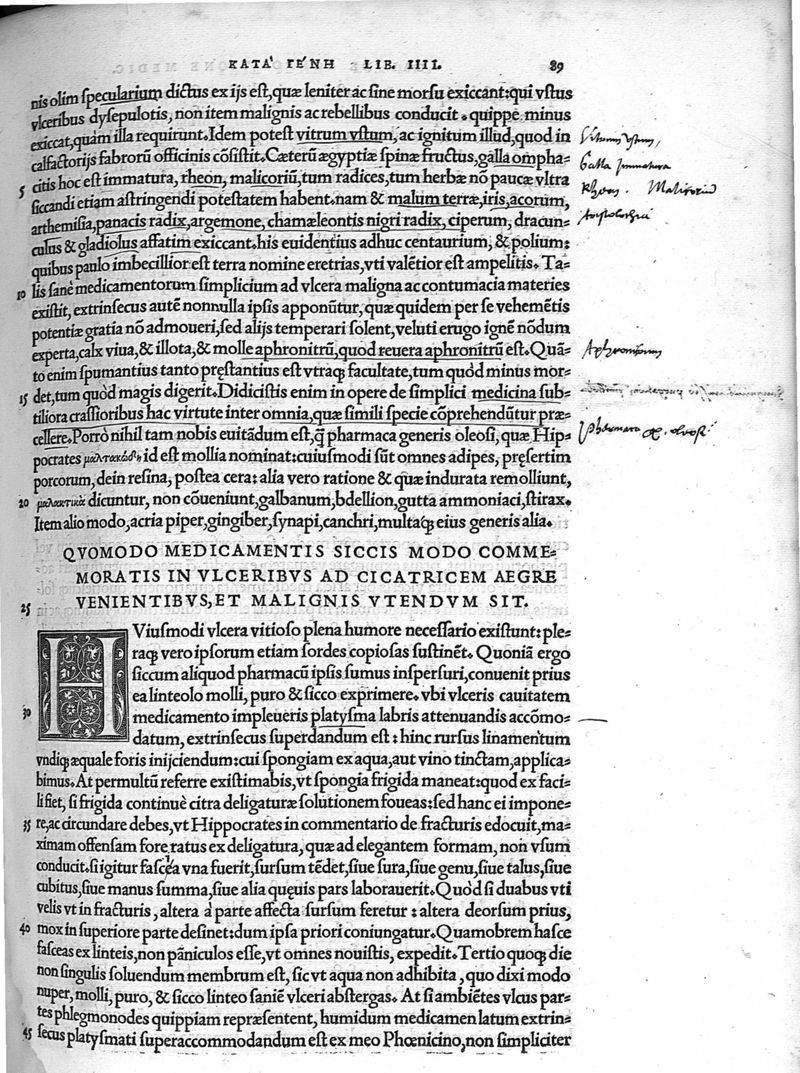 ΚΑΤΑ' ΓΕ'ΝΗ LIB. IIII. 89
nis olim specularium dictus ex ijs est, quæ leniter ac sine morsu exiccant: qui vstus
vlceribus dysepulotis, non item malignis ac rebellibus conducit. quippe minus
exiccat, quàm illa requirunt. Idem potest vitrum vstum, ac ignitum illud, quod in
Vitrum vstum,
calfactorijs fabrorũ officinis cõsistit. Cæterũ ægyptiæ spinæ fructus, galla ompha=
Galla Immatura
5 citis hoc est immatura, rheon, malicoriũ, tum radices, tum herbæ nõ paucæ vltra
Rheon. Malicoriũ
siccandi etiam astringendi potestatem habent. nam & malum terræ, iris, acorum,
arthemisia, panacis radix, argemone, chamæleontis nigri radix, ciperum, dracun=
Aristolochia
culus & gladiolus affatim exiccant. his euidentius adhuc centaurium, & polium:
quibus paulo imbecillior est terra nomine eretrias, vti valẽtior est ampelitis. Ta=
10 lis sanè medicamentorum simplicium ad vlcera maligna ac contumacia materies
existit, extrinsecus autẽ nonnulla ipsis apponũtur, quæ quidem per se vehemẽtis
potentiæ gratia nõ admoueri, sed alijs temperari solent, veluti erugo ignẽ nõdum
experta, calx viua, & illota, & molle aphronitrũ, quod reuera aphronitrũ est. Quã=
Aphronitrum
to enim spumantius tanto pręstantius est vtraq; facultate, tum quòd minus mor=
15 det, tum quòd magis digerit. Didicistis enim in opere de simplici medicina sub=
tiliora crassioribus hac virtute inter omnia, quæ simili specie cõprehendũtur præ=
cellere. Porrò nihil tam nobis euitãdum est, q̃ pharmaca generis oleosi, quæ Hip=
pharmaca
pocrates μαλτακώδη, id est mollia nominat: cuiusmodi sũt omnes adipes, pręsertim
porcorum, dein resina, postea cera: alia vero ratione & quæ indurata remolliunt,
20 μαλακτικὰ dicuntur, non cõueniunt, galbanum, bdellion, gutta ammoniaci, stirax.
Item alio modo, acria piper, gingiber, synapi, canchri, multaq; eius generis alia.
QVOMODO MEDICAMENTIS SICCIS MODO COMME=
MORATIS IN VLCERIBVS AD CICATRICEM AEGRE
25 VENIENTIBVS, ET MALIGNIS VTENDVM SIT.
HViusmodi vlcera vitioso plena humore necessario existunt: ple=
raq; vero ipsorum etiam sordes copiosas sustinẽt. Quoniã ergo
siccum aliquod pharmacũ ipsis sumus inspersuri, conuenit prius
ea linteolo molli, puro & sicco exprimere. vbi vlceris cauitatem
30 medicamento impleueris platysma labris attenuandis accõmo=
datum, extrinsecus superdandum est: hinc rursus linamentum
vndiq; æquale foris inijciendum: cui spongiam ex aqua, aut vino tinctam, applica=
bimus. At permultũ referre existimabis, vt spongia frigida maneat: quod ex faci=
li fiet, si frigida continuè citra deligaturæ solutionem foueas: sed hanc ei impone=
35 re, ac circundare debes, vt Hippocrates in commentario de fracturis edocuit, ma=
ximam offensam fore ratus ex deligatura, quæ ad elegantem formam, non vsum
conducit. si igitur fascea vna fuerit, sursum tẽdet, siue sura, siue genu, siue talus, siue
cubitus, siue manus summa, siue alia quęuis pars laborauerit. Quòd si duabus vti
velis vt in fracturis, altera à parte affecta sursum feretur: altera deorsum prius,
40 mox in superiore parte desinet: dum ipsa priori coniungatur. Quamobrem hasce
fasceas ex linteis, non pãniculos esse, vt omnes nouistis, expedit. Tertio quoq; die
non singulis soluendum membrum est, sic vt aqua non adhibita, quo dixi modo
nuper, molli, puro, & sicco linteo saniẽ vlceri abstergas. At si ambiẽtes vlcus par=
tes phlegmonodes quippiam repræsentent, humidum medicamen latum extrin=
45 secus platysmati superaccommodandum est ex meo Phœnicino, non simpliciter